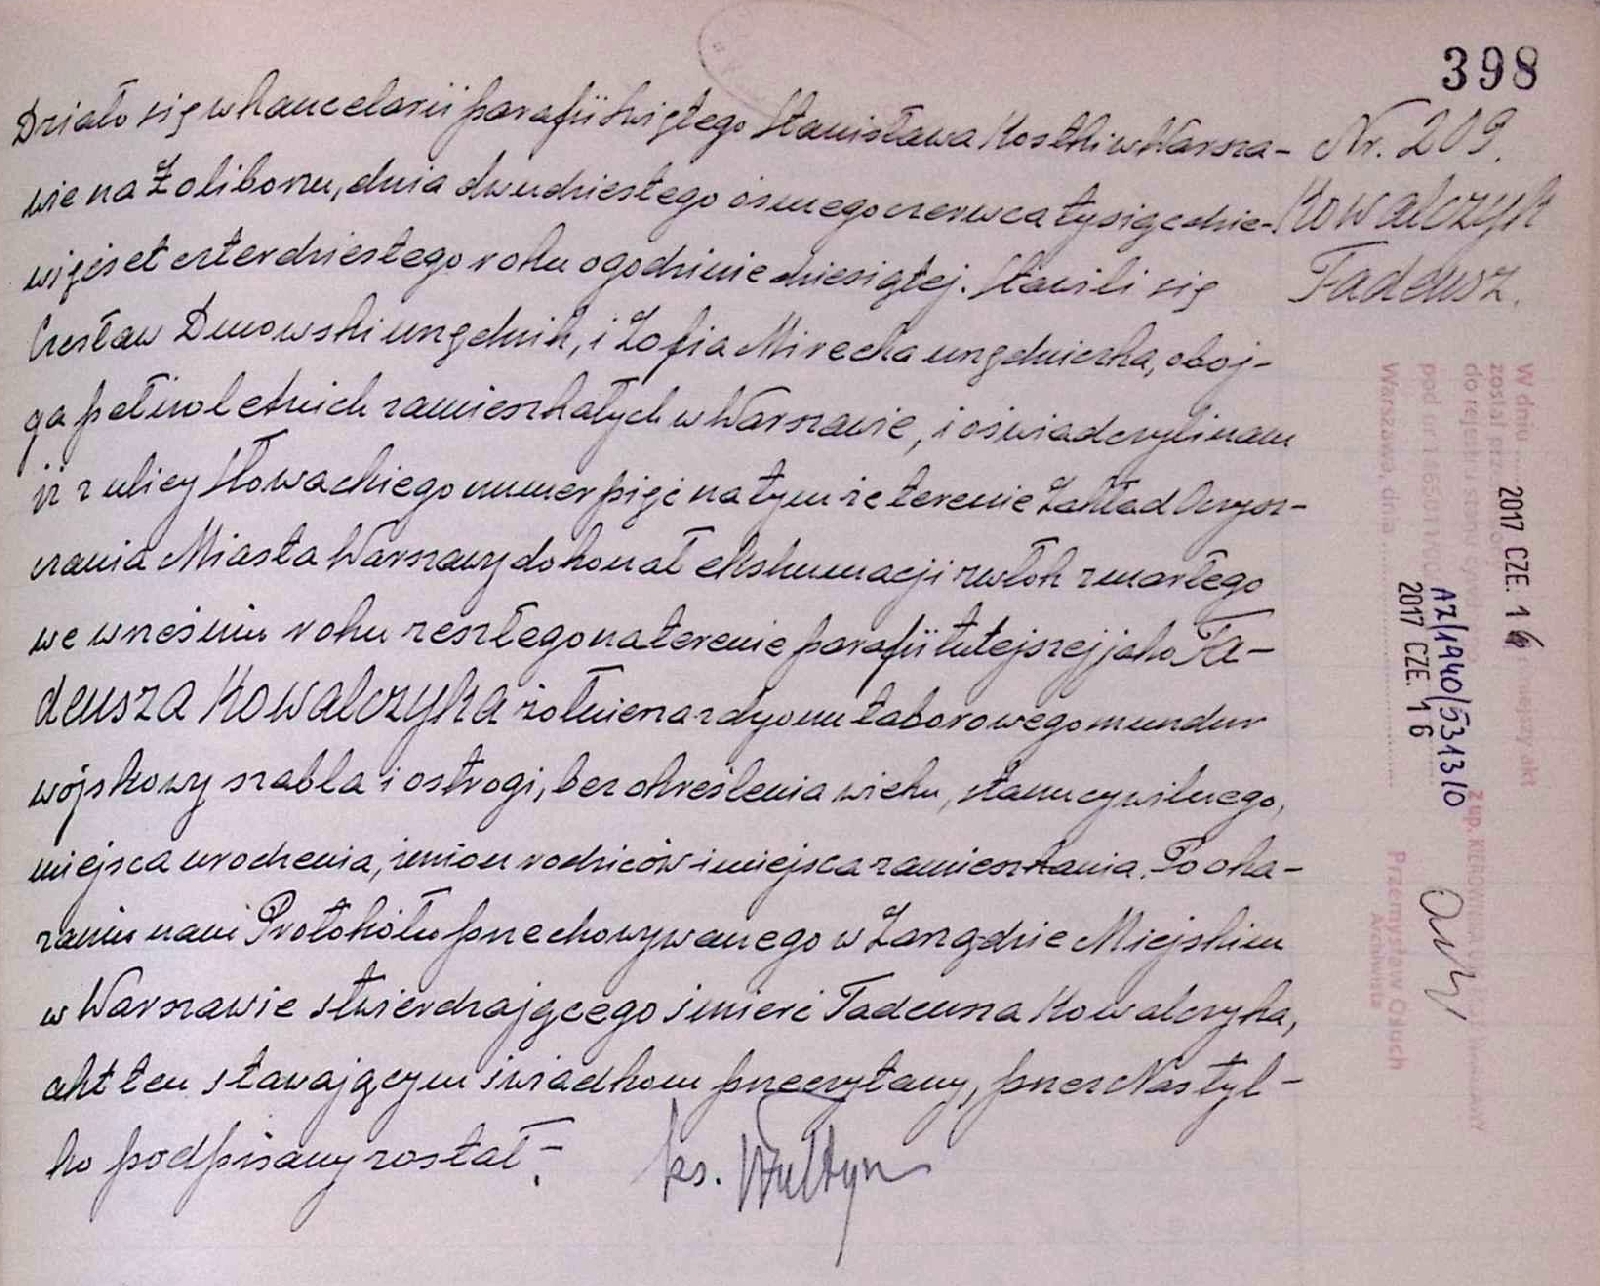 398
Działo się w kancelarii parafii świętego Stanisława Kostki w Warsza-
wie na Żoliborzu, dnia dwudziestego ósmego czerwca tysiąc dzie-
więćset czterdziestego roku o godzinie dziesiątej. Stawili się
Czesław Dmowski urzędnik, i Zofia Mirecka urzędniczka, oboj-
ga pełnoletnich zamieszkałych w Warszawie, i oświadczyli nam
iż z ulicy Słowackiego numer pięć na tym że terenie Zakład Oczysz-
czania Miasta Warszawy dokonał ekshumacji zwłok zmarłego
we wrześniu roku zeszłego na terenie parafii tutejszej jako Ta-
deusza Kowalczyka żołnierza zdyonu taborowego mundur
wojskowy szabla i ostrogi, bez określenia wieku, stanu cywilnego,
miejsca urodzenia, imion rodziców i miejsca zamieszkania. Po oka-
zaniu nam Protokółu przechowywanego w Zarządzie Miejskim
w Warszawie stwierdzającego śmierć Tadeusza Kowalczyka,
akt ten stawającym świadkom przeczytany, przez Nas tyl-
ko podpisany został.-
ks.
Nr. 209.
Kowalczyk
Tadeusz.
W dniu 2017 CZE. 16 niniejszy akt
został
do rejestru stanu
pod
AZ/1940/5313/0
Warszawa, dnia 2017 CZE. 16
Z up. KIEROWNIKA
Przemysław Osuch
Archiwista